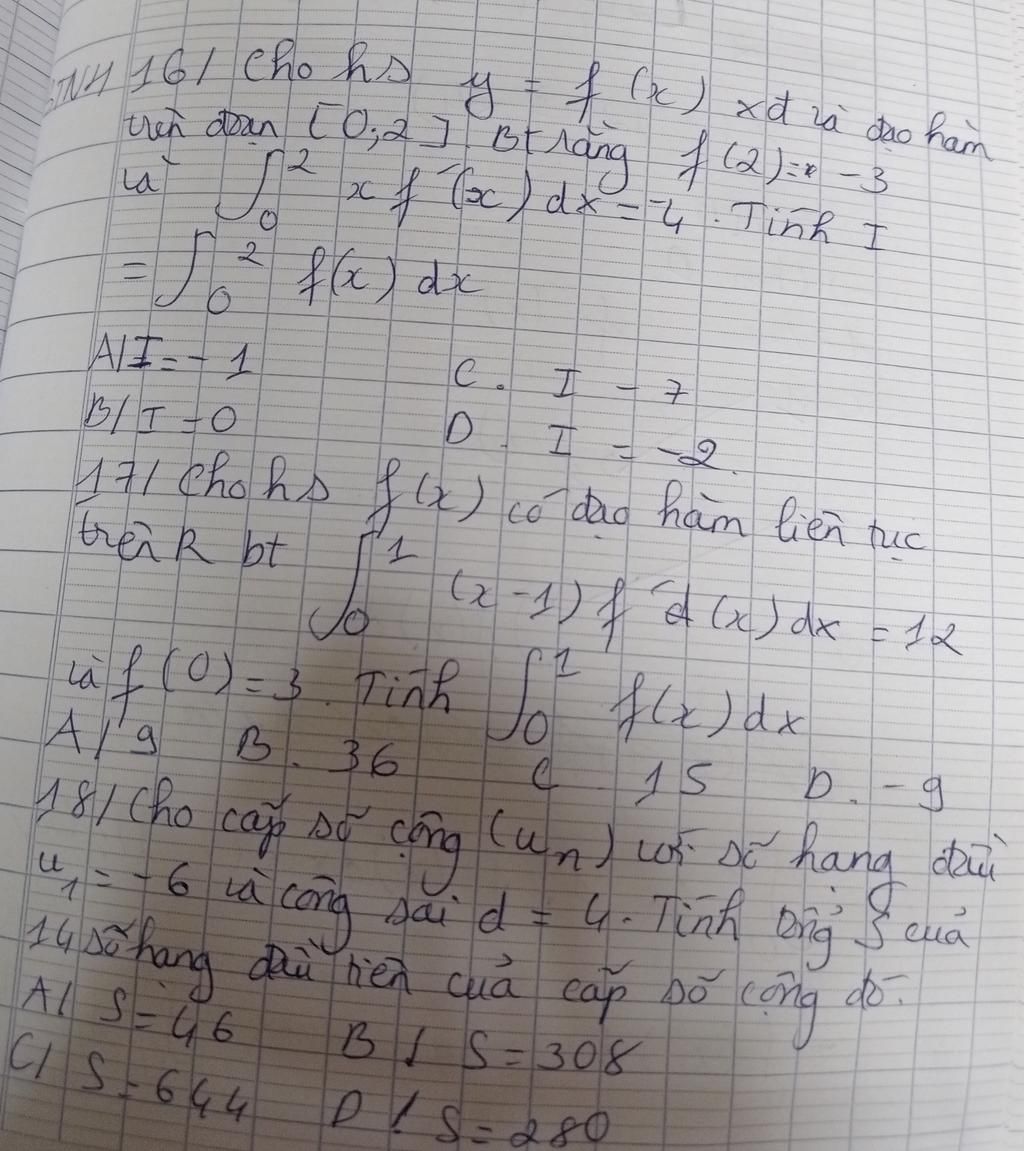 16/ Cho hs y = f(x) xđ và đạo hàm
trên đoạn [0;2]. Bt rằng f(2) = -3
và ∫₀² x f'(x) dx = -4. Tính I
= ∫₀² f(x) dx
A/ I = -1 C. I = 7
B/ I = 0 D. I = -2.
17/ Cho hs f(x) có đạo hàm liên tục
trên R bt ∫₀¹ (x-1) f'd(x) dx = 12
và f(0) = 3. Tính ∫₀¹ f(x) dx
A/ 9 B. 36 C 15 D. -9
18/ Cho cấp số cộng (uₙ) với số hạng đầu
u₁ = -6 và công sai d = 4. Tính tổng S của
14 số hạng đầu tiên của cấp số cộng đó.
A/ S = 46 B/ S = 308
C/ S = 644 D/ S = 280